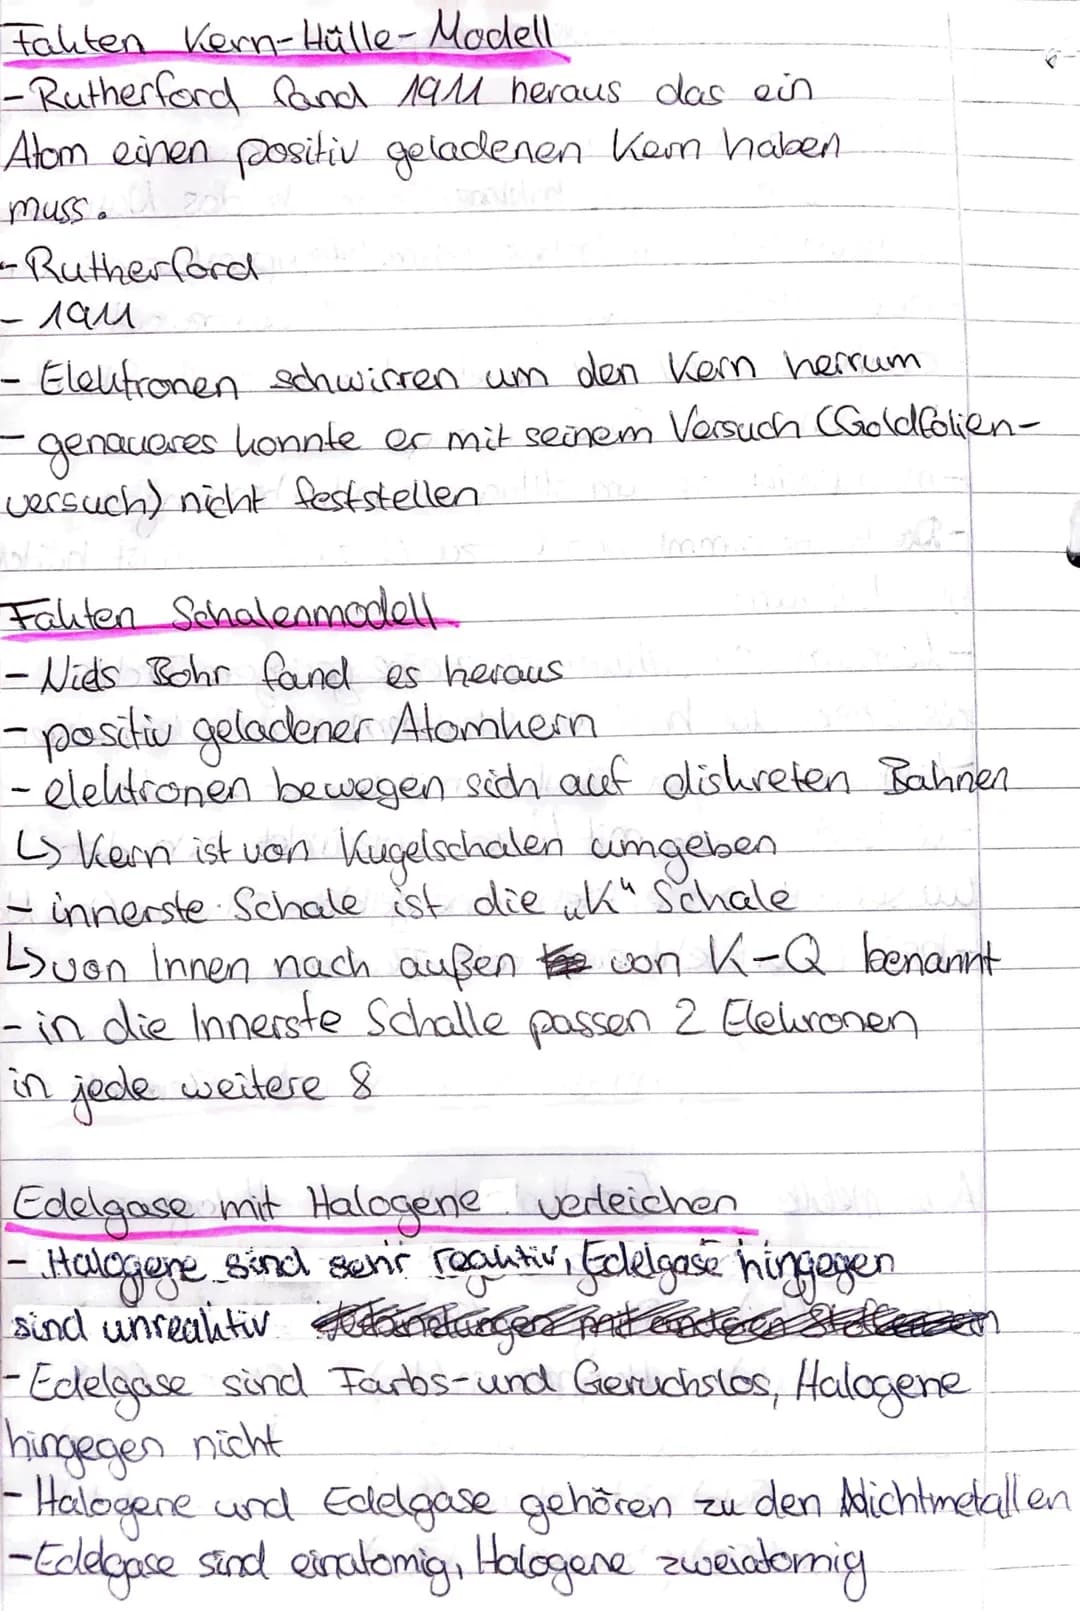 Fakten Kern-Hülle-Modell
- Rutherford fand 1911 heraus das ein
Atom einen positiv geladenen Kern haben
muss.
- Rutherford
- 1911
- Elektronen schwirren um den Kern herrum
- genaueres konnte er mit seinem Versuch (Goldfolien-
versuch) nicht feststellen
Fakten Schalenmodell
- Niels Bohr fand es heraus
- positiv geladener Atomkern
- elektronen bewegen sich auf diskreten Bahnen
↳ Kern ist von Kugelschalen umgeben
- innerste Schale ist die „K“ Schale
↳ von Innen nach außen von K-Q benannt
- in die Innerste Schalle passen 2 Elekronen
in jede weitere 8
Edelgase mit Halogene verleichen
- Halogene sind sehr reaktiv, Edelgase hingegen
sind unreaktiv
- Edelgase sind Farbs- und Geruchslos, Halogene
hingegen nicht
- Halogene und Edelgase gehören zu den Nichtmetallen
- Edelgase sind einatomig, Halogene zweiatomig